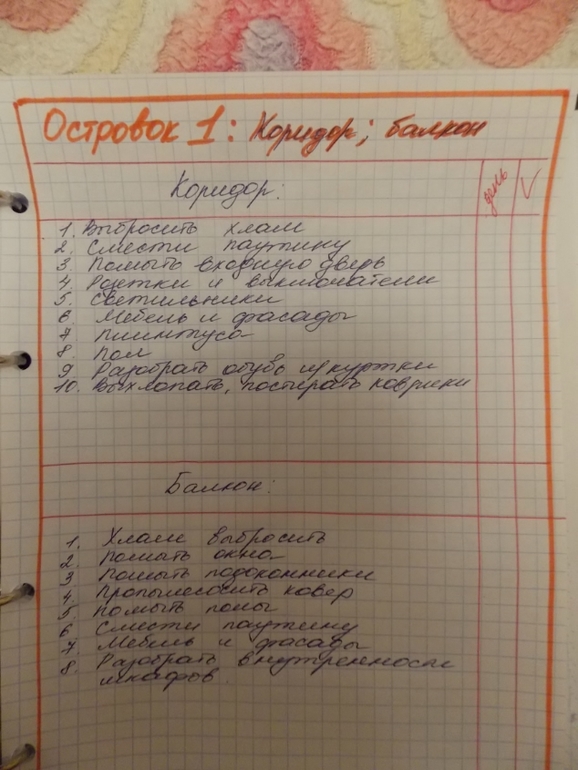 Островок 1: Коридор; балкон
Коридор: день ✓
1. Выбросить хлам
2. Смести паутину
3. Помыть входную дверь
4. Розетки и выключатели
5. Светильники
6. Мебель и фасады
7. Плинтуса
8. Пол
9. Разобрать обувь и куртки
10. Выхлопать, постирать коврики
Балкон:
1. Хлам выбросить
2. Помыть окна
3. Помыть подоконники
4. Пропылесосить ковер
5. Помыть полы
6. Смести паутину
7. Мебель и фасады
8. Разобрать внутренности
шкафов.